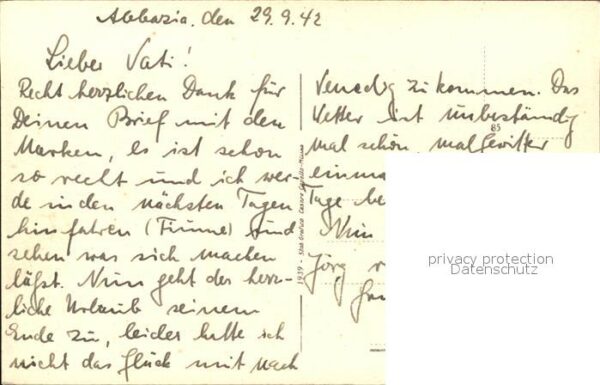 Abbazia, den 29.9.42
Lieber Vati!
Recht herzlichen Dank für
Deinen Brief mit den
Marken, es ist schon
so recht und ich wer-
de in den nächsten Tagen
hinfahren (Fiume) und
sehen was sich machen
läßt. Nun geht der herz-
liche Urlaub seinem
Ende zu, leider hatte ich
nicht das Glück mit nach
Venedig zu kommen. Das
Wetter ist unbeständig
mal schön mal Gewitter
einma
Tage be
Nun
Jörg
85
1939 - Stab. Grafico Cesare Capello - Milano
privacy protection
Datenschutz